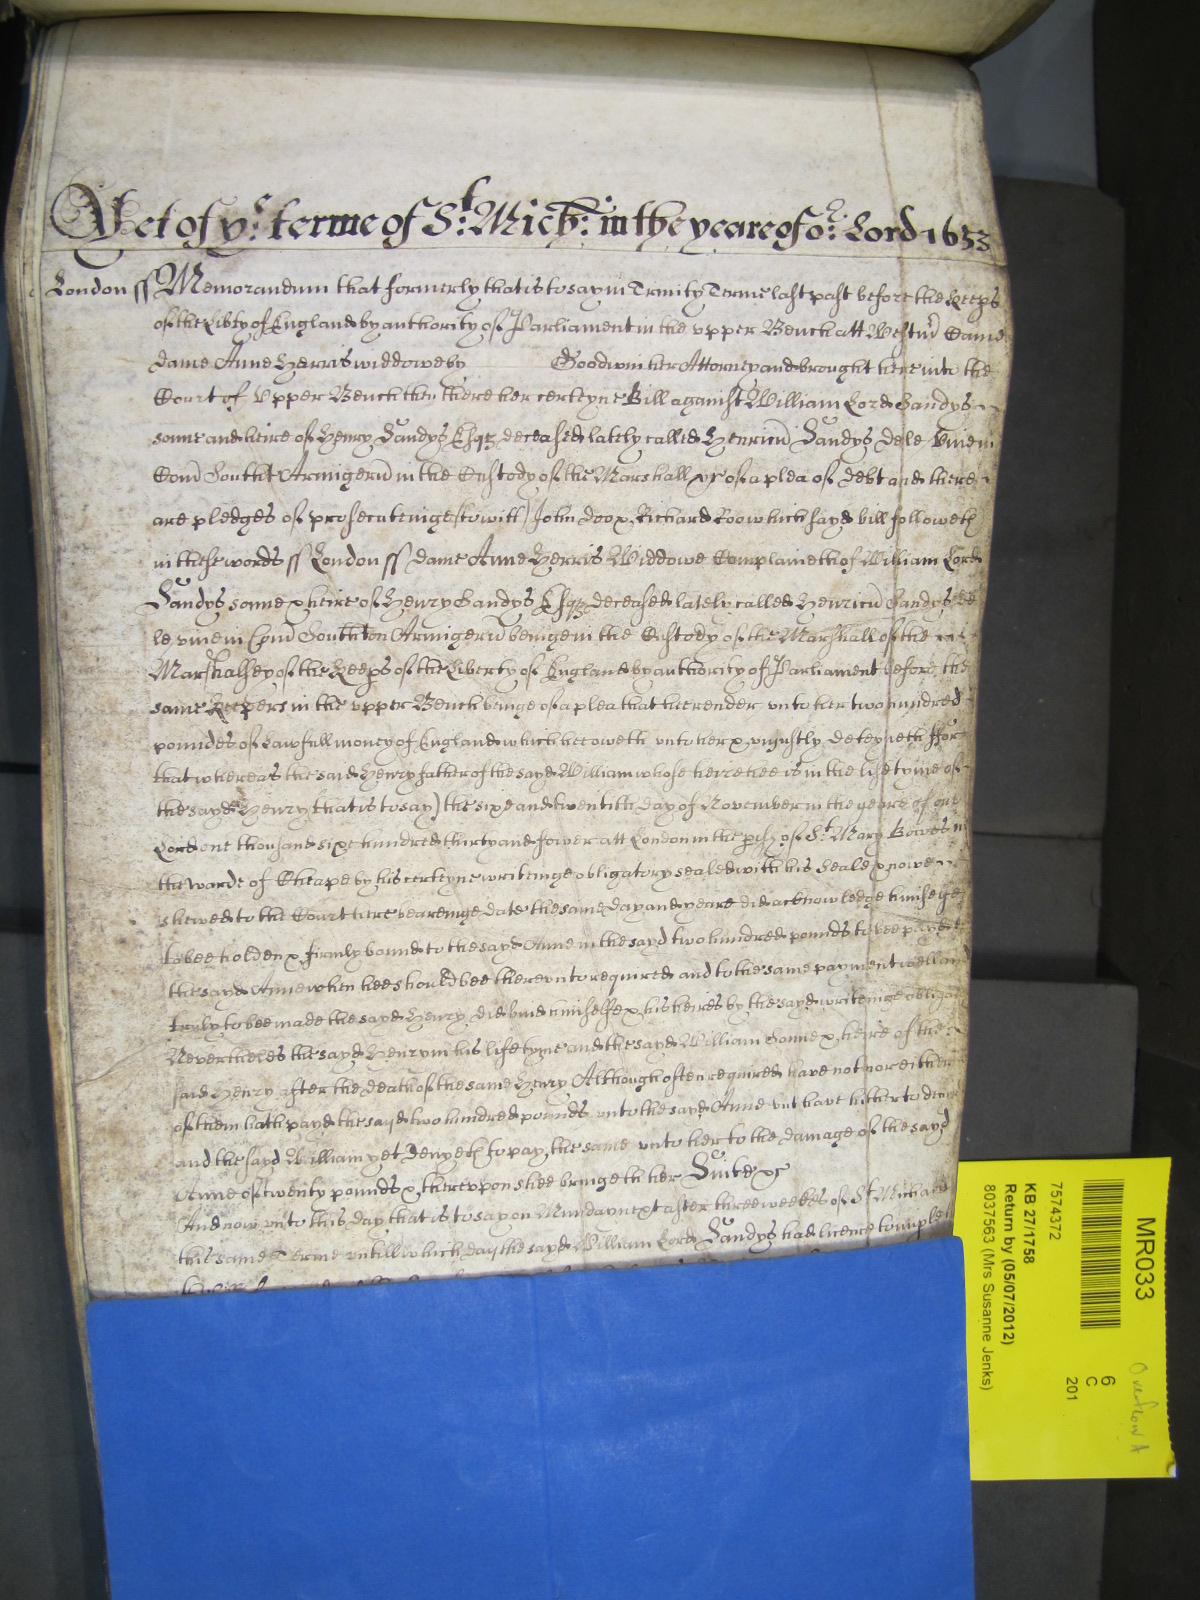 Yet of ye: terme of St: Mich: in the yeare of or: Lord 1653
London ss Memorandum that formerly that is to say in Trinity Terme last past before the Keeps
of the Libty of England by authority of Parliament in the upper Bench att Westmr Came
dame Anne Herris widdowe by Goodwin her Attorney and brought here into the
Court of Upper Bench then there her certeyne Bill against William Lord Sandys
sonne and heire of Henry Sandys Esqr deceased lately called Henricu Sandys de le Vine in
Com Southt Armigeru in the Custody of the Marshall &c of a plea of debt and there
are pledges of prosecuteinge (to witt) John Doo & Richard Roo which sayd bill followeth
in these words ss London ss dame Anne Herris Widdowe Complaineth of William Lord
Sandys sonne & heire of Henry Sandys Esqr deceased lately called Henricu Sandys de
le vine in Com Southton Armigeru beinge in the Custody of the Marshall of the
Marshalsey of the Keeps of the Liberty of England by authority of Parliament before the
same Keepers in the upper Bench beinge of a plea that hee render unto her two hundred
poundes of Lawfull money of England which hee oweth unto her & uniustly deteyneth ffor
that whereas the said Henry father of the sayd William whose heire hee is in the life tyme of
the sayd Henry (that is to say) the sixe and twentith day of November in the yeare of our
Lord one thousand sixe hundred thirty and fower att London in the psh of St Mary Bowes in
the warde of Cheape by his certeyne writeinge obligatory sealed with his Seale & nowe
shewed to the Court here beareinge date the same day and yeare did acknowledge himselfe
to bee holden & firmly bound to the sayd Anne in the sayd two hundred pounds to bee payd to
the sayd Anne when hee should bee thereunto required and to the same payment well and
truly to bee made the sayd Henry did bind himselfe & his heires by the sayd writeinge obligat
Nevertheles the sayd Henry in his life tyme and the sayd William sonne & heire of the
said Henry after the death of the same Henry Although often required have not nor either
of them hath payd the sayd two hundred pounds unto the sayd Anne but have hitherto
and the sayd William yet denyeth to pay the same unto her to the damage of the sayd
Anne of twenty pounds & thereupon shee bringeth her Suite &c
And now unto this day that is to say on Munday next after three weekes of St Michaell
this same Terme untill which day the sayd William Lord Sandys had licence to imple
MR033
6
C
201
Overflow A
7574372
KB 27/1758
Return by (05/07/2012)
8037563 (Mrs Susanne Jenks)